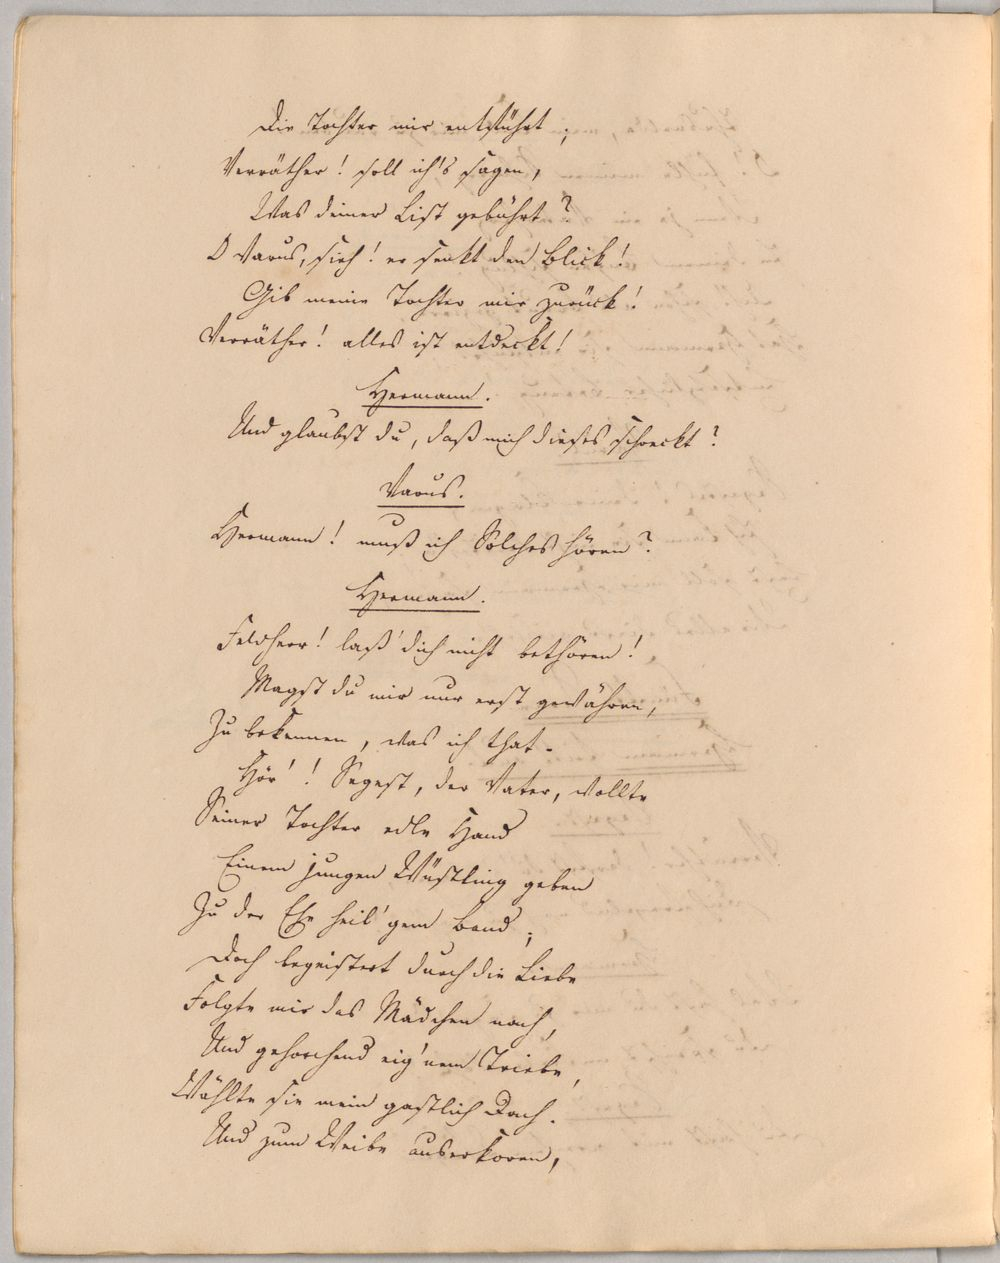 Die Tochter mir entführt;
Verräther! soll ich's sagen,
Was deiner List gebührt?
O Varus, sieh! er senkt den Blick!
Gib meine Tochter mir zurück!
Verräther! alles ist entdeckt!
Hermann.
Und glaubst du, daß mich dieses schreckt?
Varus.
Hermann! muß ich Solches hören?
Hermann.
Feldherr! laß' dich nicht bethören!
Magst du mir nur erst gewähren,
Zu bekennen, was ich that.
Hör'! Segest, der Vater, wollte
Seiner Tochter edle Hand
Einem jungen Wüstling geben
Zu der Ehe heil'gem Band;
Doch begeistert durch die Liebe
Folgte mir das Mädchen nach,
Und gehorchend eig'nem Triebe,
Wählte sie mein gastlich Dach.
Und zum Weibe auserkoren,